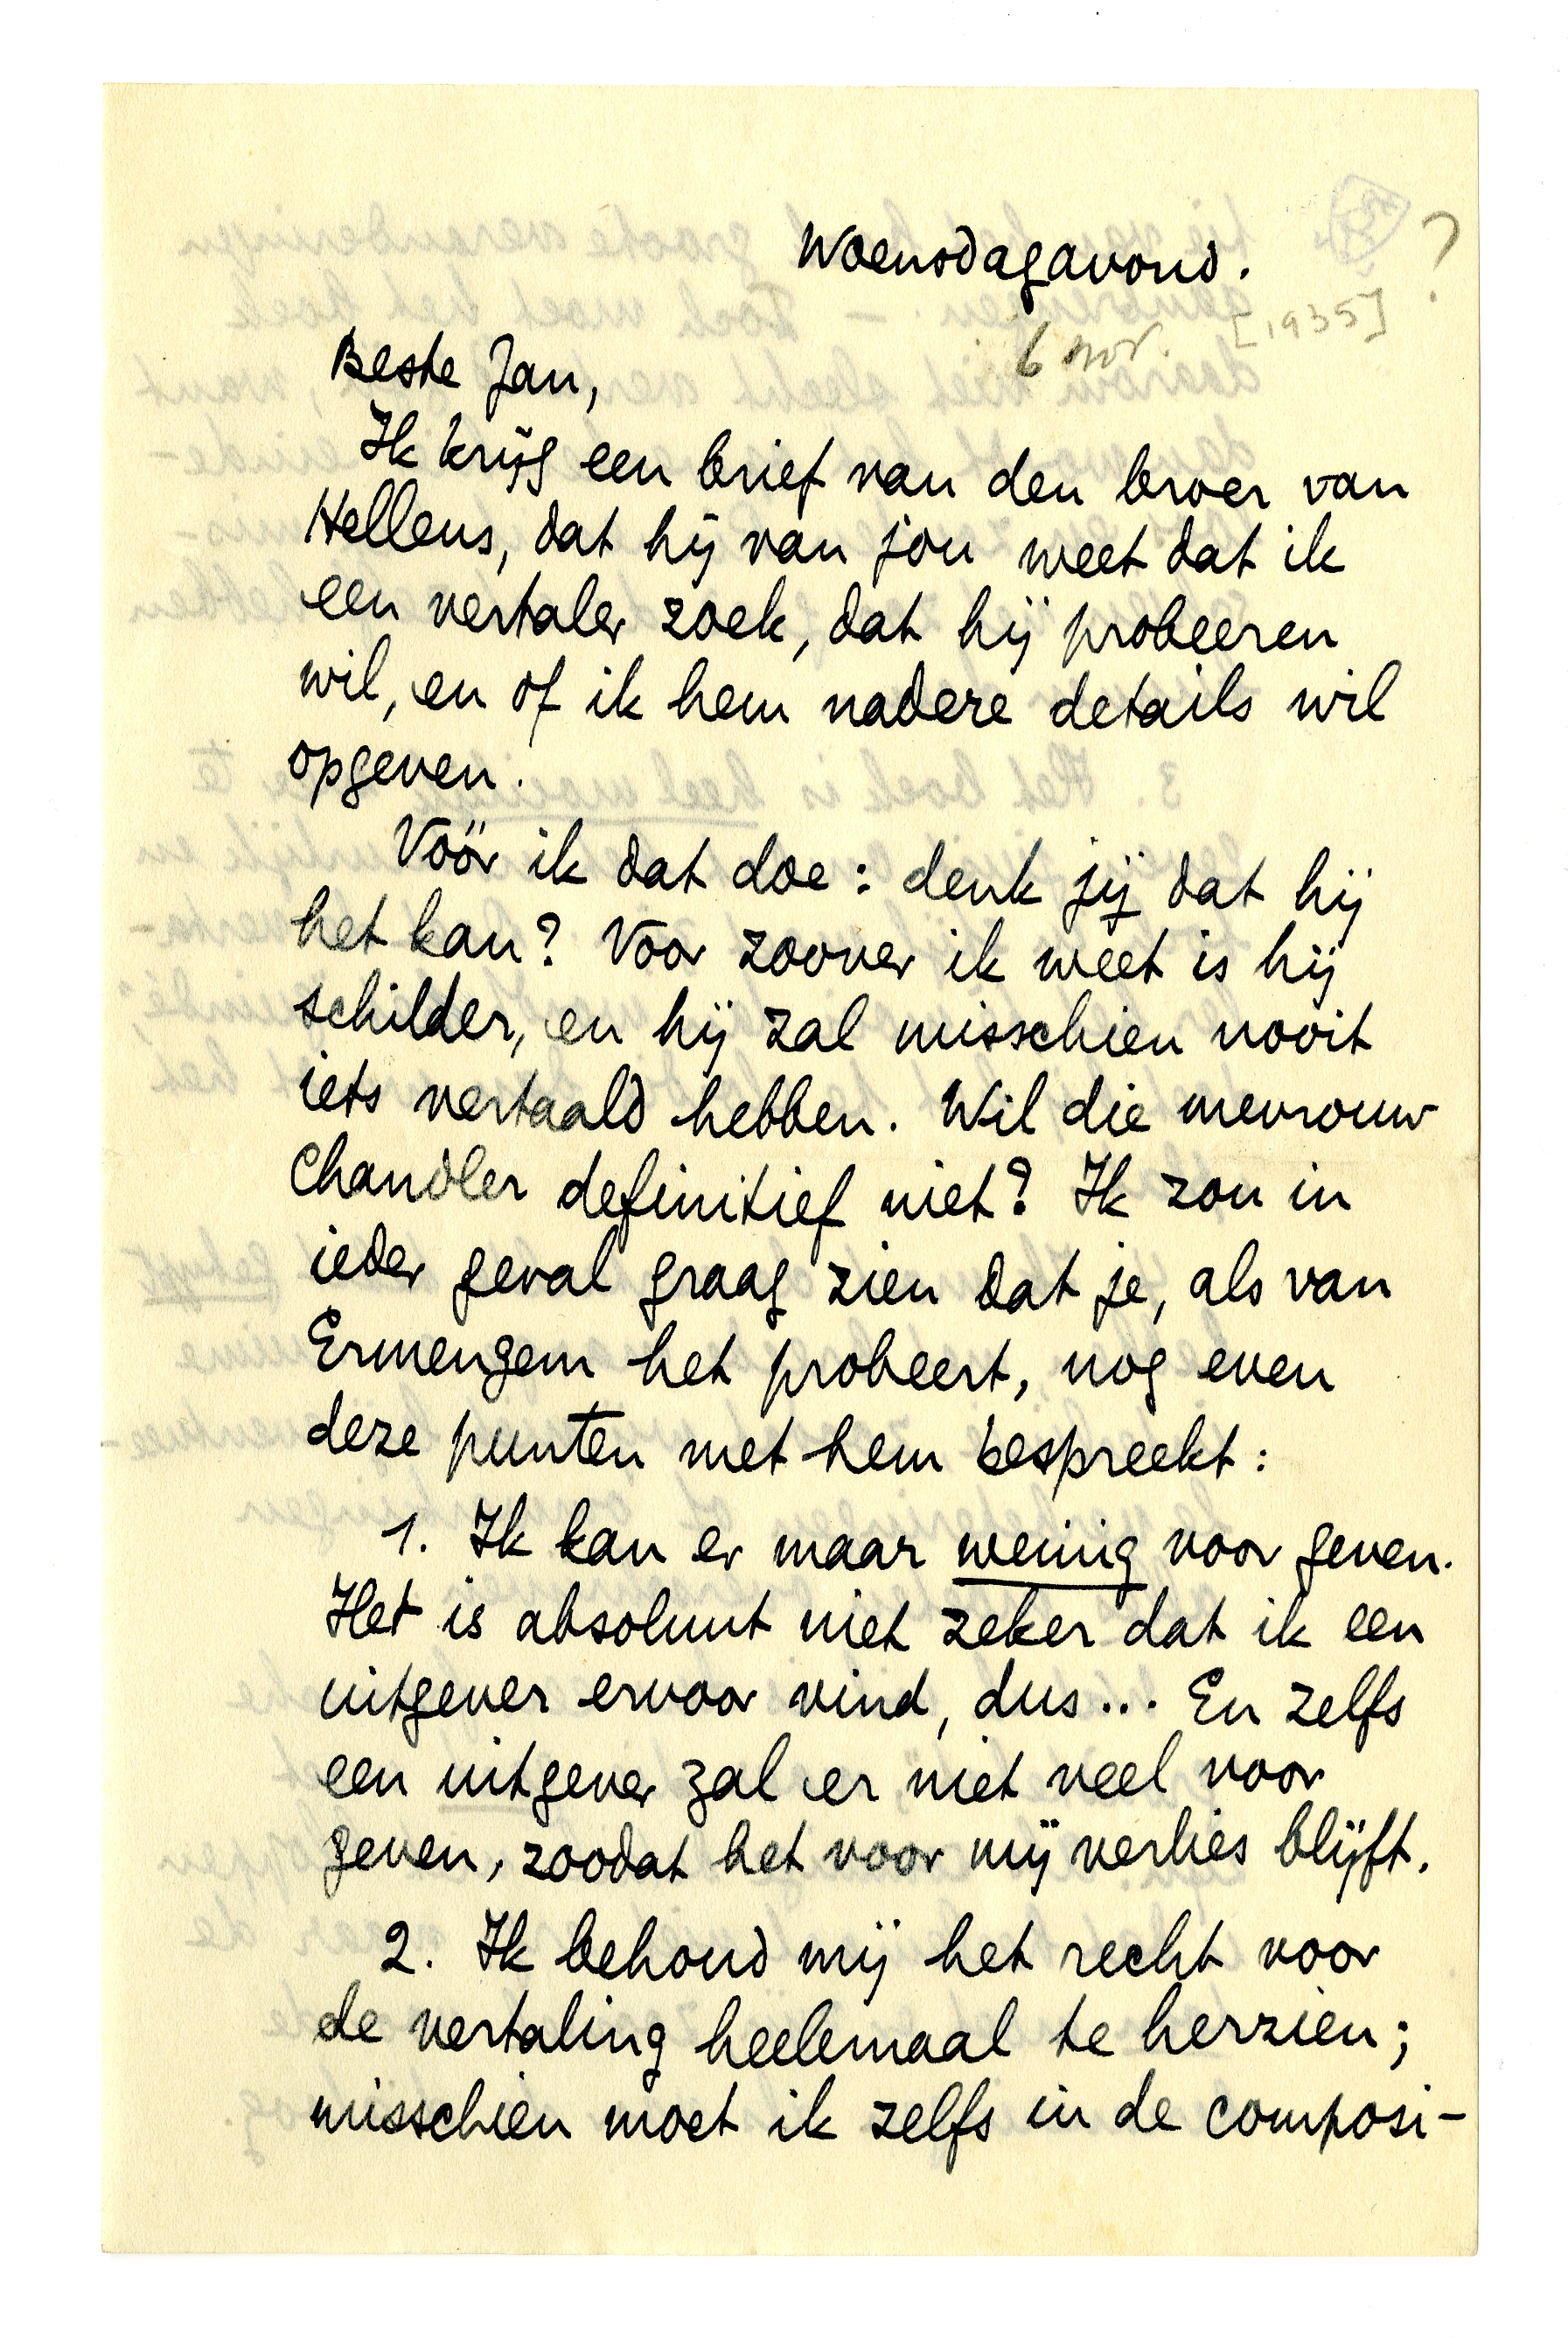 Woensdagavond.
6 nov. [1935] ?
Beste Jan,
Ik krijg een brief van den broer van
Hellens, dat hij van jou weet dat ik
een vertaler zoek, dat hij probeeren
wil, en of ik hem nadere details wil
opgeven.
Vóór ik dat doe: denk jij dat hij
het kan? Voor zoover ik weet is hij
schilder, en hij zal misschien nooit
iets vertaald hebben. Wil die mevrouw
Chandler definitief niet? Ik zou in
ieder geval graag zien dat je, als van
Ermengem het probeert, nog even
deze punten met hem bespreekt:
1. Ik kan er maar weinig voor geven.
Het is absoluut niet zeker dat ik een
uitgever ervoor vind, dus... En zelfs
een uitgever zal er niet veel voor
geven, zoodat het voor mij verlies blijft.
2. Ik behoud mij het recht voor
de vertaling heelemaal te herzien;
misschien moet ik zelfs in de composi-